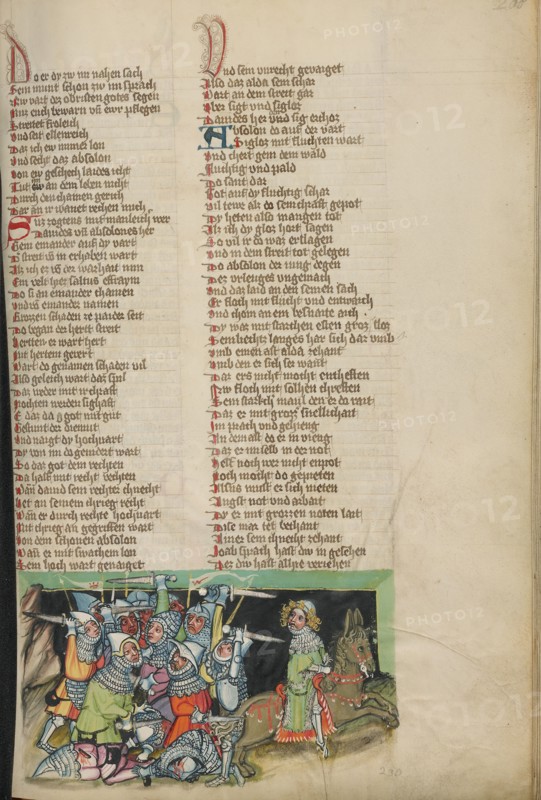 Do er dy zw im nahen sach
Sein munt schon zw im sprach
Ew wart der obristen gotes segen
Mus euch bewarn vnd ewr pflegen
Streitet froleich
Vnd seit ellenreich
Dar ich ew immer lon
Vnd secht daz absolon
Von ew geschech laides icht
Tut im an dem leben nicht
Durch den chamen gerich
Dar an ir wanet rechen mich
Sus zogtens mit manleich wer
Dauides vnd absolones her
Gein einander auf dy vart
Der streit vs in erhaben wart
Ein velt hiez saltus effraym
Do si an einander chamen
Vnd vs einander namen
Grozzen schaden ze paider seit
Do began der hertt streit
Hertter er wart hert
Mit hertem gevert
Wart do genamen schaden vil
Also geleich wart daz spil
Daz weder mit ir chraft
Mochten werden sighaft
E daz da got mit gut
Gestunt der diemut
Vnd naigt dy hochuart
Dy von im da gemert wart
So daz got dem rechten
Da half mit recht vechten
Dan dauid sein rechter chnecht
Het an seinem chrieg recht
Wan er durch rechte hochuart
Mit chrieg an gegriffen wart
Von dem schonen absolon
Wan er mit swachem lon
Sein hoch wart genaiget
Vnd sein vnrecht gevaiget
Also daz alda sein schar
Wart an dem streit gar
Aber sigt vnd siglos
Dauides her vnd sig erchos
Absolon do auf der vart
Siglos mit fluchten wart
Vnd chert gein dem wald
Fluchtig vnd pald
Do sant dar
Tot auf dy fluchtig schar
Vil tewr alz do sein chraft gepot
Dy heten also mangen tot
Alz ich dy gloz hort sagen
So vil ir do war erslagen
Vnd in dem streit tot gelegen
Do absolon der iung degen
Dez vrleuges vngemach
Vnd daz laid an den seinen sach
Er floch mit flucht vnd entwaich
Vnd chom an ein
Dy waz mit starchen esten groz
Sein langes har sich dar vmb
Vmb einen ast alda zehant
Vmb den er sich ser want
Daz ers nicht mocht enthesten
Nw floch mit solhen chresten
Sein starch maul den er da rait
Daz er mit grozz snellichait
Im sprach vnd gehieng
An dem ast do er in vieng
Daz er im selb in der not
Helf noch wer nicht enpot
Noch mocht do gepieten
Alsus must er sich nieten
Angst not vnd arbait
Dy er mit grozzen noten lait
Dise mar tet bechant
Ainer sein chnecht zehant
Joab sprach hast dw in gesehen
Dez dw hast alhye veriehen
230